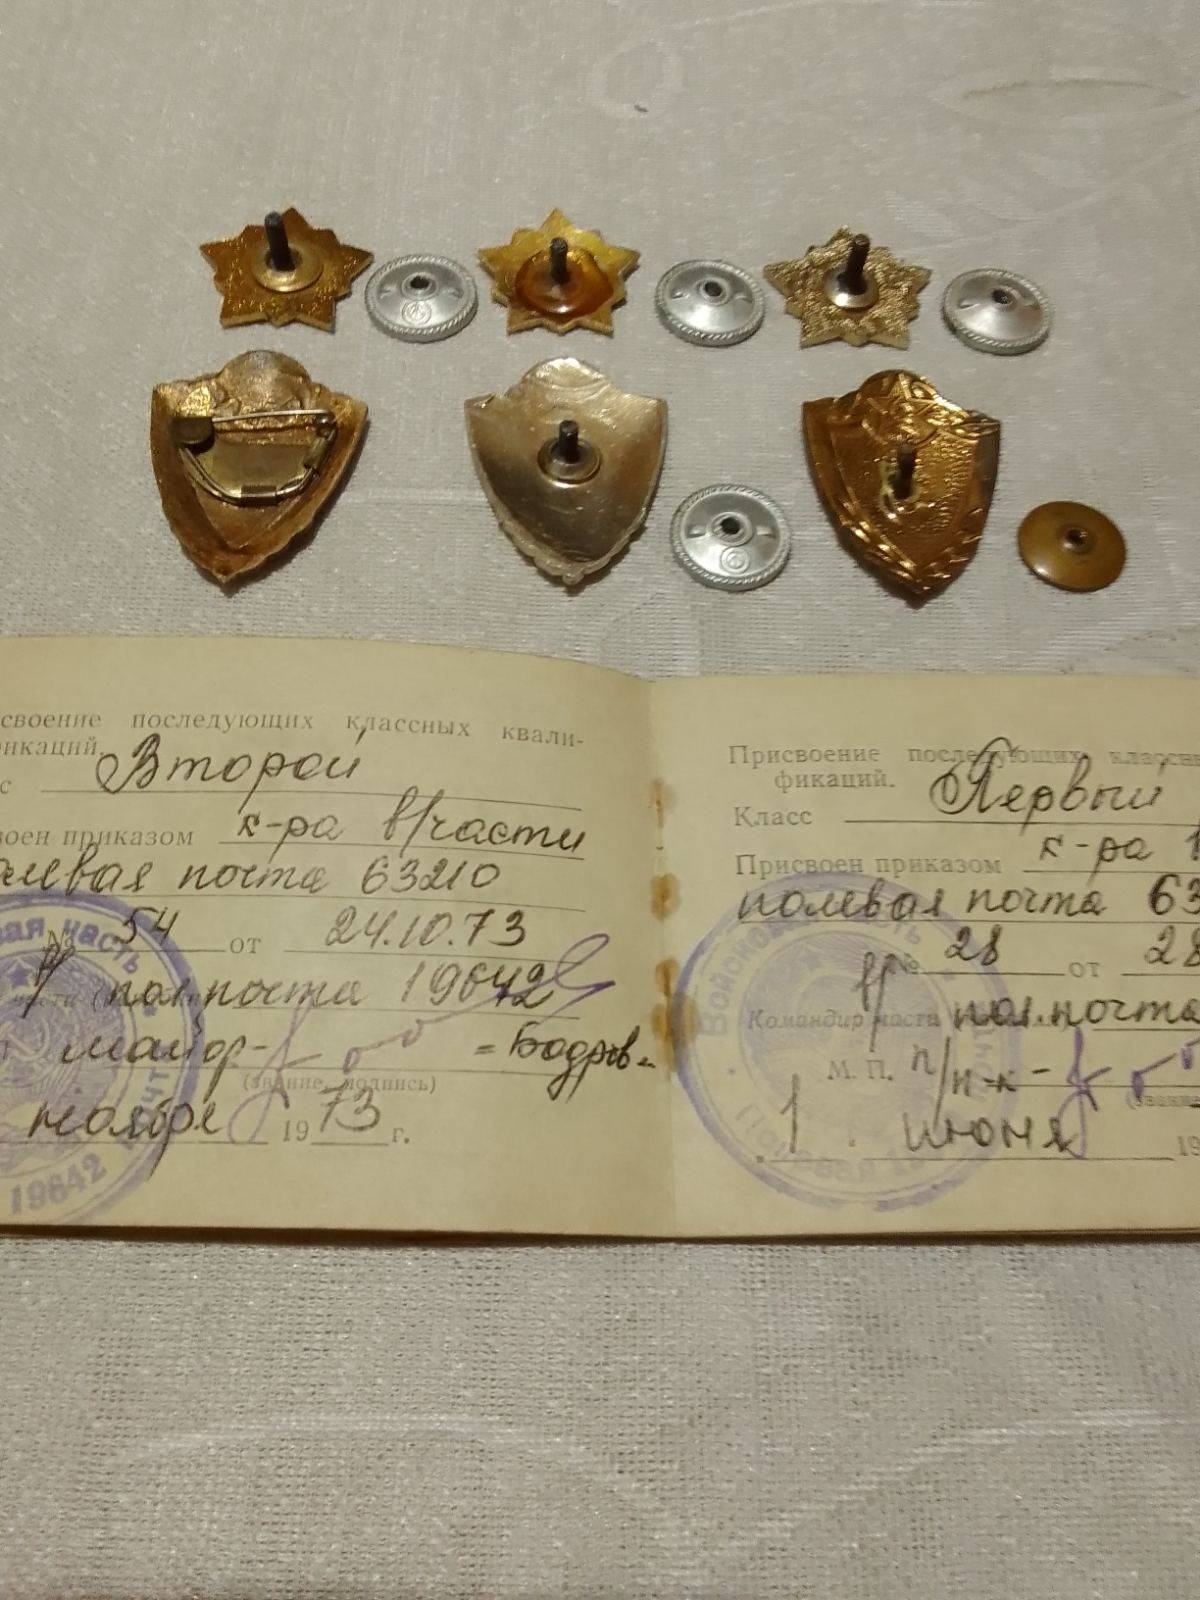 своение последующих классных квали-
фикаций.
с Второй
воен приказом к-ра в/части
полевая почта 63210
№ 54 от 24.10.73
пол. почта 19642
майор = Бодров =
(звание, подпись)
ноября 1973 г.
вая часть
19642
Присвоение последующих классн
фикаций.
Класс Первый
Присвоен приказом к-ра
полевая почта 63
№ 28 от 28
Командир части пол. почта
М. П. п/п-к
(звание
1 июня 19
Войсковая часть
Полевая